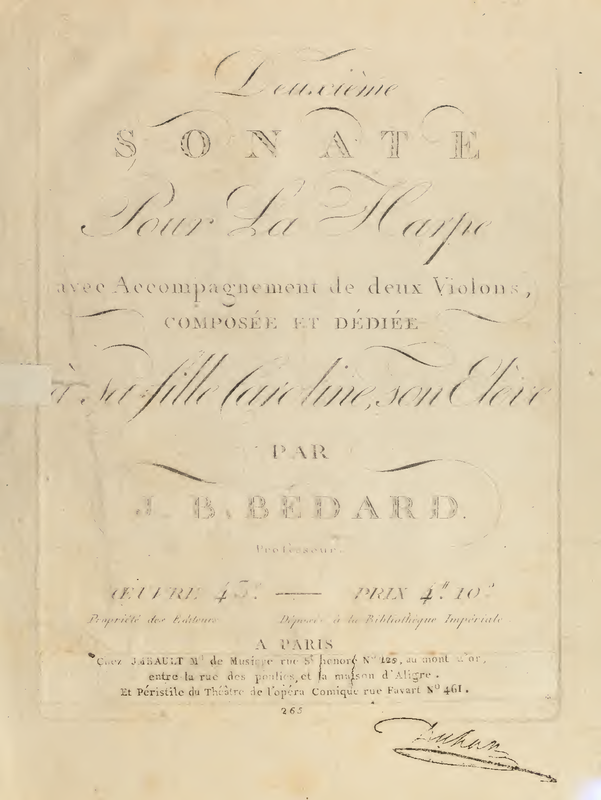 Deuxième
SONATE
Pour La Harpe
avec Accompagnement de deux Violons,
COMPOSÉE ET DÉDIÉE
à sa fille Caroline, son Elève
PAR
J. B. BÉDARD.
Professeur.
ŒUVRE 43e. — PRIX 4ll. 10s.
Propriété des Editeurs Déposée à la Bibliothèque Impériale
A PARIS
Chez JABAULT Md. de Musique rue St. honoré No. 125, au mont d'or,
entre la rue des poulies, et la maison d'Aligre.
Et Péristile du Théâtre de l'opéra Comique rue Favart No 461.
265